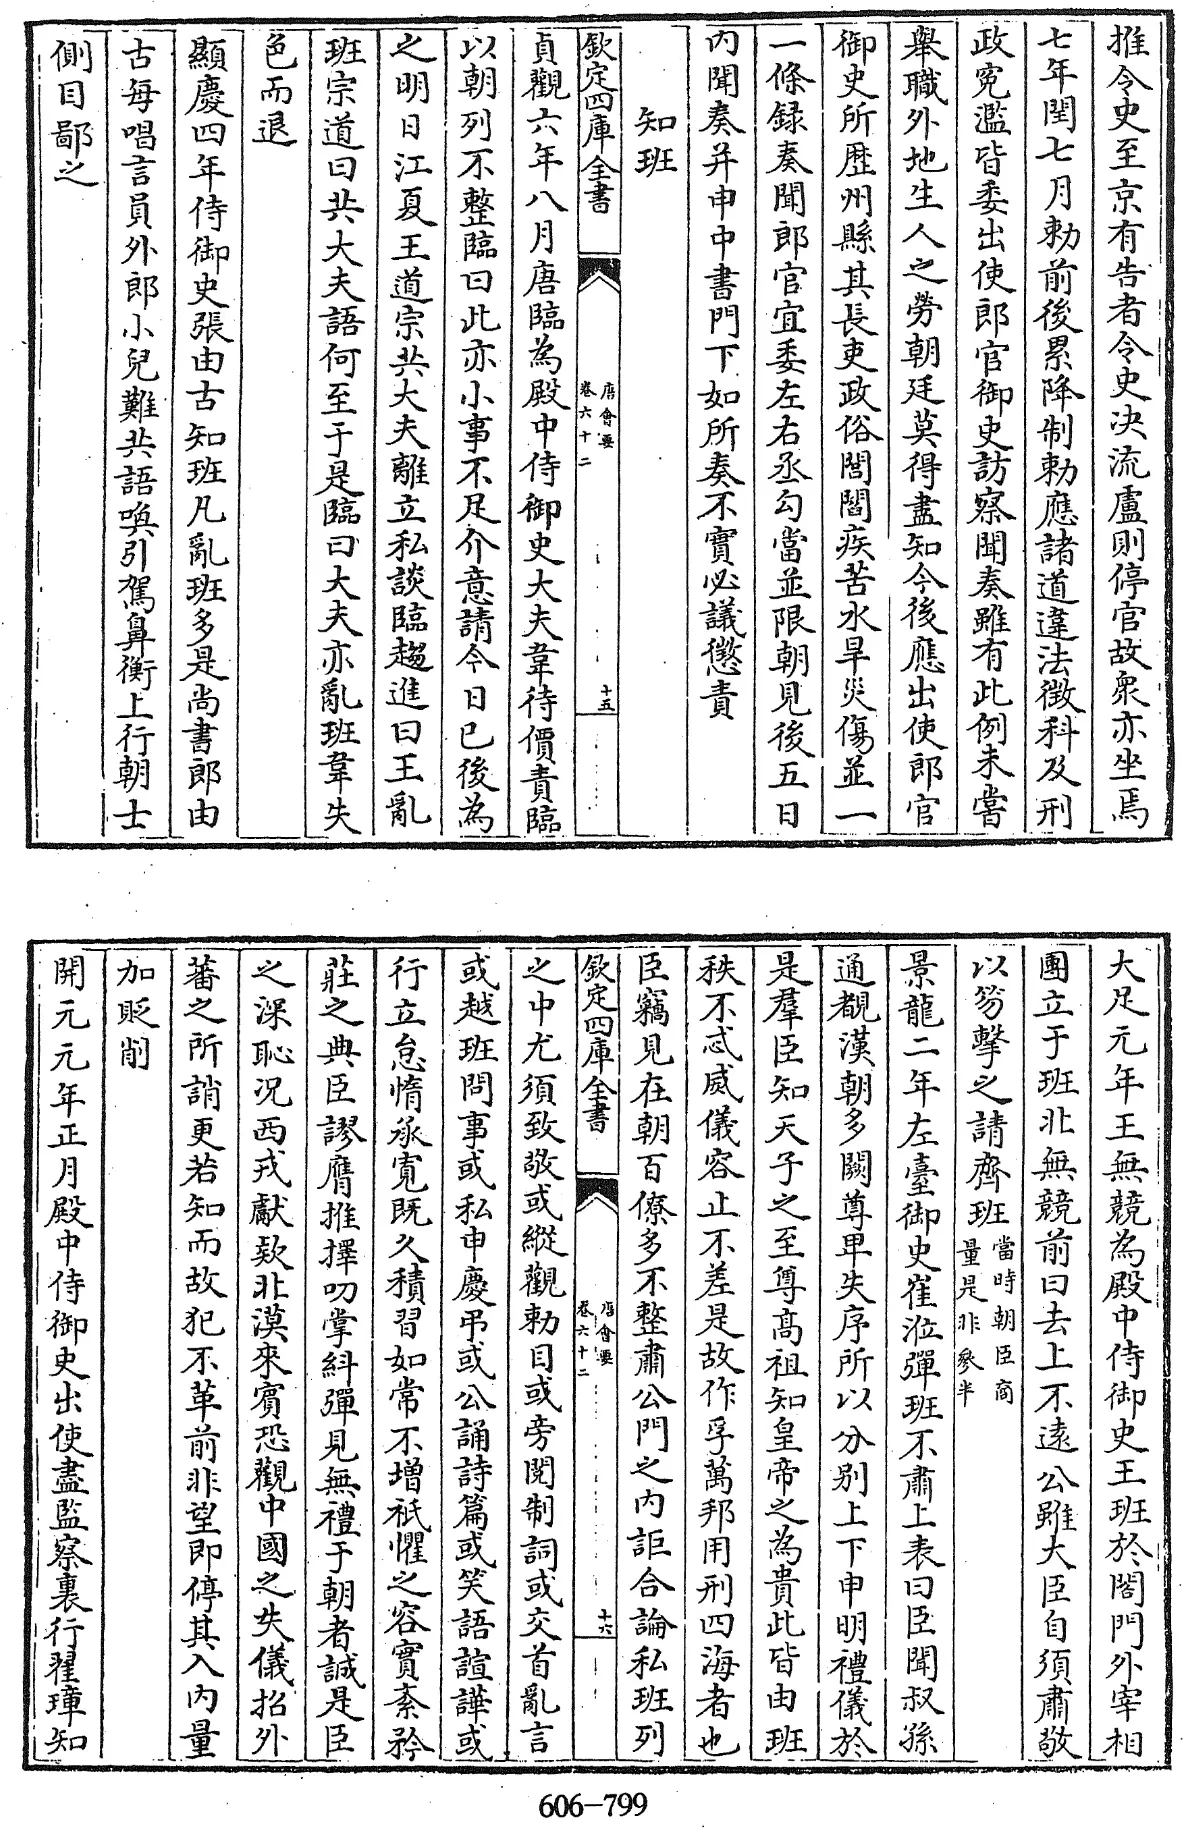 推令史至京有告者令史決流盧則停官故衆亦坐焉
七年閏七月勅前後累降制勅應諸道違法徴科及刑
政寃濫皆委出使郎官御史訪察聞奏雖有此例未嘗
舉職外地生人之勞朝廷莫得盡知今後應出使郎官
御史所歴州縣其長吏政俗閭閻疾苦水旱災傷並一
一條録奏聞郎官宜委左右丞勾當並限朝見後五日
内聞奏并申中書門下如所奏不實必議懲責
知班
欽定四庫全書
唐會要
卷六十二
十五
貞觀六年八月唐臨為殿中侍御史大夫韋待價責臨
以朝列不整臨曰此亦小事不足介意請今日已後為
之明日江夏王道宗共大夫離立私談臨趨進曰王亂
班宗道曰共大夫語何至于是臨曰大夫亦亂班韋失
色而退
顯慶四年侍御史張由古知班凡亂班多是尚書郎由
古每唱言員外郎小兒難共語喚引駕鼻衝上行朝士
側目鄙之
大足元年王無競為殿中侍御史王班於閤門外宰相
團立于班北無競前曰去上不遠公雖大臣自須肅敬
以笏擊之請齊班當時朝臣商
量是非參半
景龍二年左臺御史崔涖彈班不肅上表曰臣聞叔孫
通覩漢朝多闕尊卑失序所以分别上下申明禮儀於
是羣臣知天子之至尊高祖知皇帝之為貴此皆由班
秩不忒威儀容止不差是故作孚萬邦用刑四海者也
臣竊見在朝百僚多不整肅公門之内詎合論私班列
欽定四庫全書
唐會要
卷六十二
十六
之中尤須致敬或縱觀勅目或旁閲制詞或交首亂言
或越班問事或私申慶弔或公誦詩篇或笑語諠譁或
行立怠惰承寛既久積習如常不增祗懼之容實紊矜
莊之典臣謬膺推擇叨掌糾彈見無禮于朝者誠是臣
之深恥况西戎獻欵北漠來賓恐觀中國之失儀招外
蕃之所誚更若知而故犯不革前非望即停其入内量
加貶削
開元元年正月殿中侍御史出使盡監察裏行翟璋知
606-799